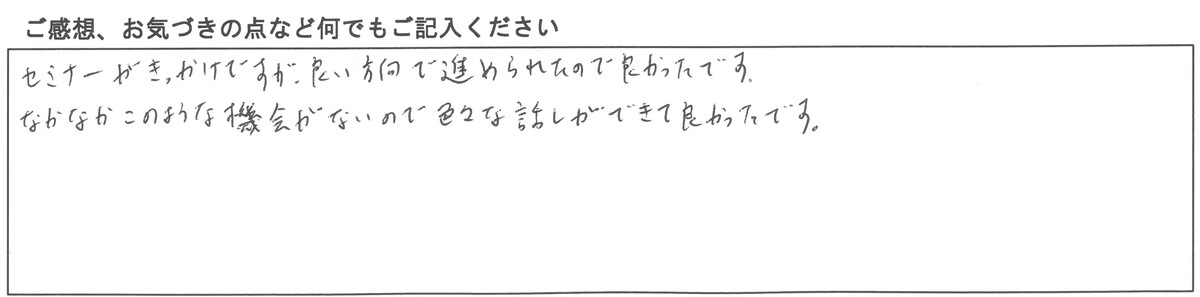 ご感想、お気づきの点など何でもご記入ください
セミナーがきっかけですが、良い方向で進められたので良かったです。
なかなかこのような機会がないので色々な話しができて良かったです。